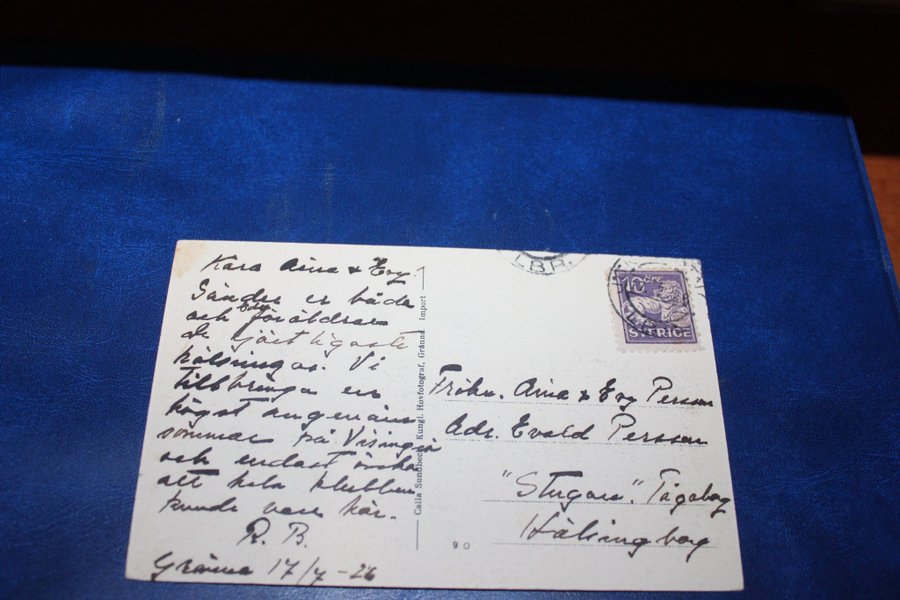 Kära Aina & Evy!
Sänder er båda
och Edra föräldrar
de hjärtligaste
hälsningar. Vi
tillbringa en
högst angenäm
sommar på Visingsö
och endast önska
att hela klubben
kunde vara här.
R. B.
Gränna 17/7 - 26
Calla Sundberg, Kungl. Hovfotograf, Gränna. Import
90
LBR
10 ÖRE
SVERIGE
Frökn. Aina & Evy Persson
Adr. Evald Persson
"Stugan". Tågaborg
Hälsingborg